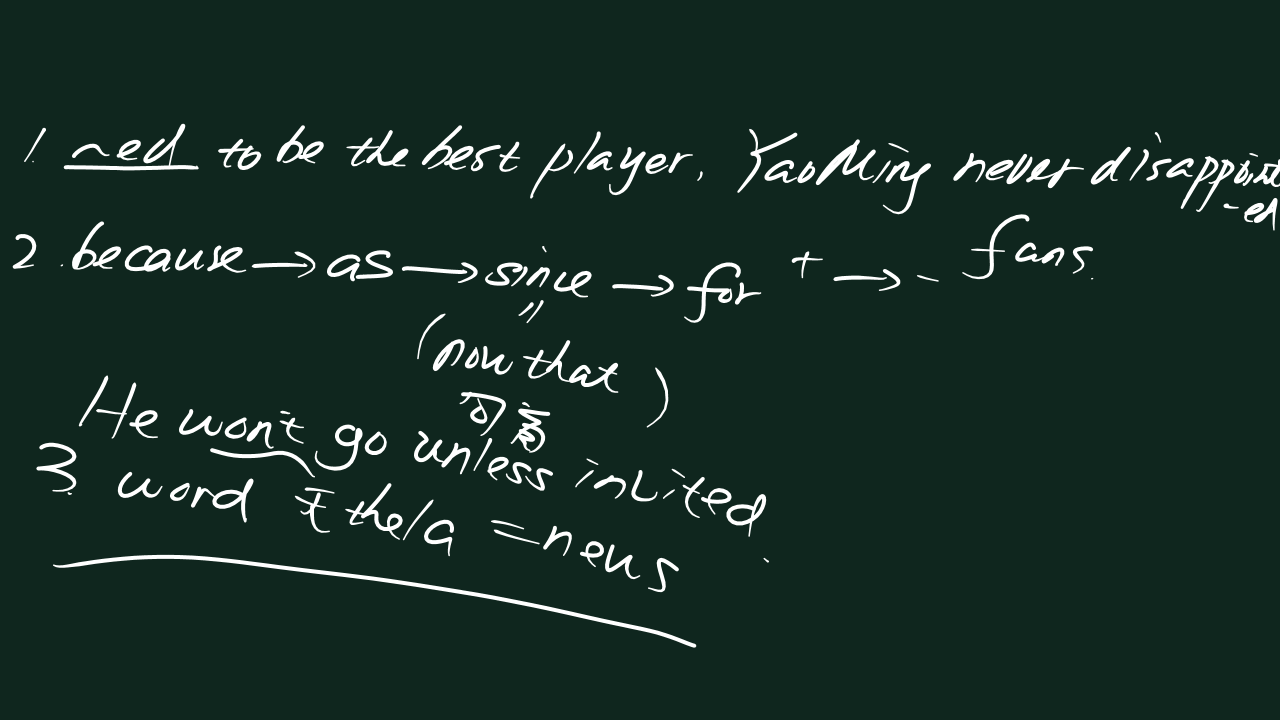 1. ~ed to be the best player, YaoMing never disappoint
-ed
fans.
2. because → as → since → for + → -
"
(now that)
He won't go unless invited.
3. word 无 the/a = news